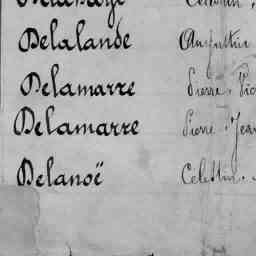 Delalande Augustin
Delamarre Pierre, Vic
Delamarre Pierre, Jean
Delanoë Célestin.